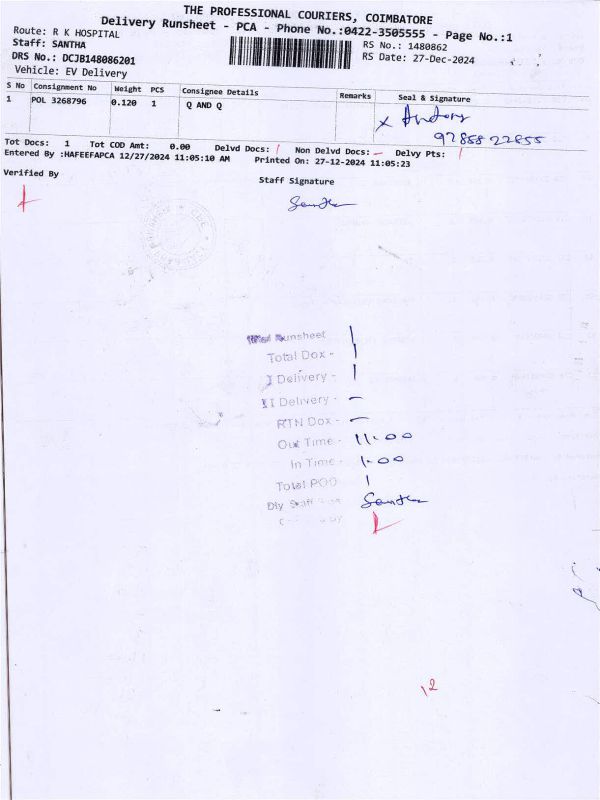 THE PROFESSIONAL COURIERS, COIMBATORE
Delivery Runsheet - PCA - Phone No.:0422-3505555 - Page No.:1
Route: R K HOSPITAL
Staff: SANTHA
DRS No.: DCJB148086201
Vehicle: EV Delivery
RS No.: 1480862
RS Date: 27-Dec-2024
S No Consignment No Weight PCS Consignee Details Remarks Seal & Signature
1 POL 3268796 0.120 1 Q AND Q
Tot Docs: 1 Tot COD Amt: 0.00 Delvd Docs: / Non Delvd Docs: — Delvy Pts: /
Entered By :HAFEEFAPCA 12/27/2024 11:05:10 AM Printed On: 27-12-2024 11:05:23
Verified By
Staff Signature
Santha
Runsheet 1
Total Dox - 1
I Delivery - 1
II Delivery - –
RTN Dox - –
Out Time - 11.00
In Time - 1.00
Total POD 1
Dly Staff Santha
12